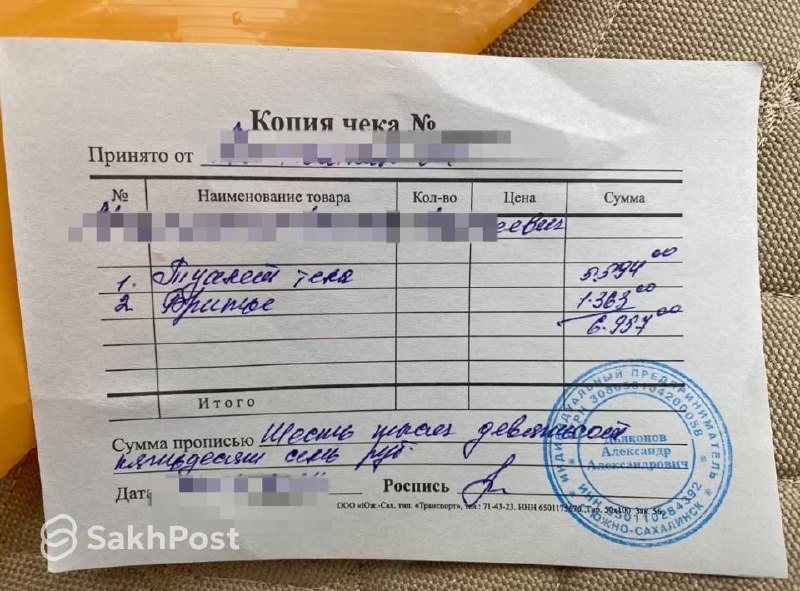 Копия чека №
Принято от
№ Наименование товара Кол-во Цена Сумма
еевич
1. Туалет тела 5.594 00
2. Бритье 1.363 00
6.957 00
Итого
Сумма прописью Шесть тысяч девятьсот
пятьдесят семь руб.
Дата
Роспись
ООО «Юж.-Сах. тип. «Транспорт», тел.: 71-43-23. ИНН 6501175675 Тир. 50х100 Зак. 56
ИНДИВИДУАЛЬНЫЙ ПРЕДПРИНИМАТЕЛЬ
Александр
Александрович
ЮЖНО-САХАЛИНСК
SakhPost